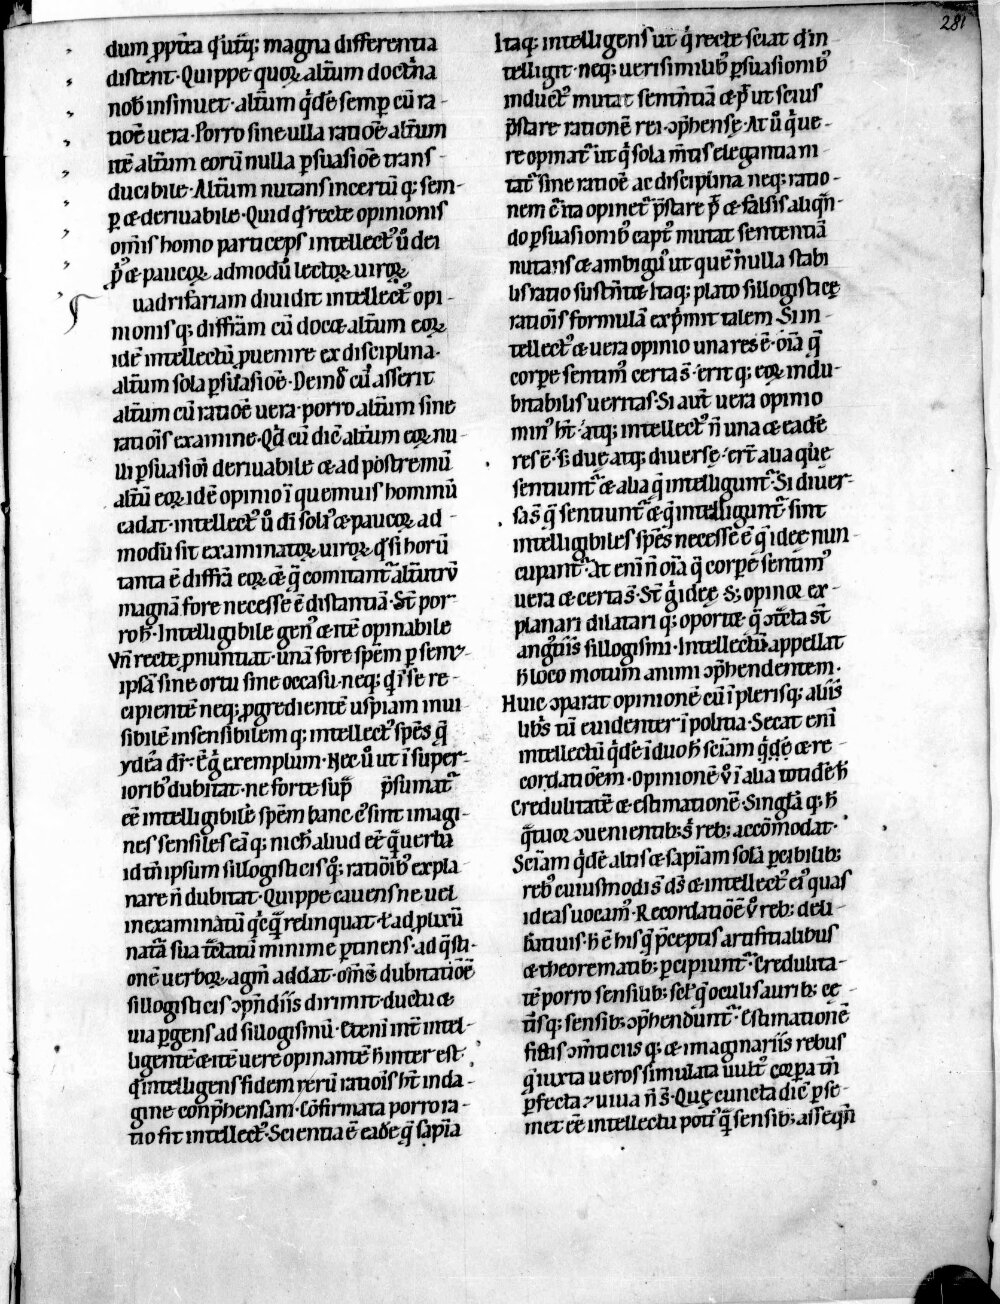 281
dum ꝓpt̃ea qͥ utͥq; magna differentia
distent· Quippe quoꝝ alt̃um doctͥna
nobꝰ insinuet· alt̃um qͥdẽ semꝑ cũ ra-
tiõe uera· Porro sine ulla ratiõe alt̃um
itẽ alt̃um eorũ nulla ꝑsuasiõe trans-
ducibile· Alt̃um nutans incertũ q; sem-
ꝑ & deriuabile· Quid qͥ recte opinionis
om̃is homo particeps intellectꝰ u̾o dei
ꝓpͥꝰ & paucoꝝ admodũ lectoꝝ uiroꝝ
uadrifariam diuidit intellectꝰ opi-
nionis q; differ̃am cũ docet alt̃um eoꝝ
idẽ intellectũ ꝓuenire ex disciplina·
alt̃um sola ꝑsuasiõe· Deinđ cũ asserit
alt̃um cũ ratiõe uera· porro alt̃um sine
ratiõis examine· Qđ cũ diẽ alt̃um eoꝝ nu-
lli ꝑsuasiõi deriuabile & ad postremũ
alt̃ũ eoꝝ idẽ opinio ĩ quemuis hominũ
cadat· intellectꝰ u̾o dĩ soliꝰ & paucoꝝ ad-
modũ sit examinatoꝝ uiroꝝ qͥ si horũ
tanta ẽ differ̃a eoꝝ &̃ q̃ comitant̃ alt̃utrũ
magnã fore necesse ẽ distantiã· St̃ por-
ro ħ· Intelligibile genꝰ & itẽ opinabile
Vñ recte ꝓnuntiat· unã fore spẽm ꝑ semꝰ
ipsã sine ortu sine occasu· neq; qͥ ĩ se re-
cipientẽ neq; ꝓgredientẽ uspiam inui-
sibilẽ insensibilem q; intellectꝰ spẽs q̃
ydẽa dr̃· Ẽ gͥ exemplum· Nec u̾o ut ĩ super-
ioribꝰ dubitat· ne forte sup̃ p̃sumat̃
eẽ intelligibilẽ spẽm hanc cꝰ sint imagi-
nes sensiles eã q; nicħ aliud eẽ q̃ uerba
id tñ ipsum sillogisticis qͦ; ratiõibꝰ expla-
nare ñ dubitat· Quippe cauens ne uel
inexaminatũ qͥcq̃ relinquat· ł ad plurũ
nat̃a sua t̃ctatũ minime ꝑtinens· ad q̃sti-
onẽ uerboꝝ agm̃ addat· om̃ẽ dubitatiõẽ
sillogisticis ꝯpñdiis dirimit· ductu &
uia ꝑgens ad sillogismũ· Etenĩ int̃ intel-
ligentẽ & itẽ uere opinantẽ ħ inter est·
qͥ intelligens fidem rerũ ratiõis ħt inda-
gine conp̃hensam· Cõfirmata porro ra-
tio fit intellectꝰ· Scientia ẽ eadẽ q̃ sapĩa
Itaq; intelligens ut qͥ recte sciat qͥ in-
telligit· neq; uerisimilibꝰ ꝑsuasionibꝰ
inductꝰ mutat sentñtiã & pͥ ut scius
p̃stare rationẽ rei ꝯp̃hensę· At u̾o qͥ ue-
re opinat̃ ut qͥ sola m̃tis elegantia ni-
tat̃ sine ratiõe ac disciplina neq; ratio-
nem cͥ ita opinet̃ p̃stare pͥ & falsis aliqñ-
do ꝑsuasionibꝰ captꝰ mutat sententiã
nutans & ambiguꝰ ut quẽ nulla stabi-
lis ratio sustñtet· Itaq; plato sillogisticę
ratiõis formulã expͥmit talem· Si in-
tellectꝰ & uera opinio una res ẽ· oĩa q̃
corꝑe sentimꝰ certa s̃· erit q; eoꝝ indu-
bitabilis ueritas· Si aut̃ uera opinio
minꝰ ħt· atq; intellectꝰ ñ una & eadẽ
res ẽ· s; duę atq; diuersę· er̃t alia quę
sentiunt̃ & alia q̃ intelligunt̃· Si diuer-
sa s̃ q̃ sentiunt̃ & q̃ intelligunt̃ sint
intelligibiles spẽs necesse ẽ q̃ ideę nun-
cupant̃· At enĩ ñ oĩa q̃ corꝑe sentimꝰ
uera & certa s̃· St̃ gͥ ideę· s; opinor ex-
planari dilatari q; oportet q̃ ꝯt̃cta st̃
angũsiis sillogismi· Intellectũ appellat
ħ loco motum animi ꝯp̃hendentem·
Huic ꝯparat opinionẽ cũ ĩ plerisq; aliis
libris tũ euidenter ĩ politia· Secat enĩ
intellectũ qͥdẽ ĩ duo ħ sciãm qͥdẽ & re-
cordatiõem· Opinionẽ u̾o ĩ alia totidẽ ħ
Credulitatẽ & estimationẽ· Singl̃a q; ħ
q̃tuor ꝯuenientib; s̃ reb; accõmodat·
Sciãm qͥdẽ altis & sapĩam solã ꝑcibilib;
rebꝰ cuiusmodi s̃ ds̃ & intellectꝰ eiꝰ quas
ideas uocamꝰ· Recordatiõẽ u̾o reb; deli-
batiuis· ħ ẽ his q̃ p̃ceptis artificialibus
& theorematib; ꝑcipiunt̃· Credulita-
tẽ porro sensilib; scl̃ q̃ oculis aurib; cę-
t̃isq; sensib; ꝯp̃hendunt̃· Estimationẽ
fictis ꝯm̃ticiis q; & imaginariis rebus
q̃ iuxta ueros simulata uultꝰ corꝑa tñ
ꝑfecta & uiua ñ s̃· Quę cuncta diẽ ꝑ se-
met eẽ intellectu potiꝰ q̃ sensib; asseqñ